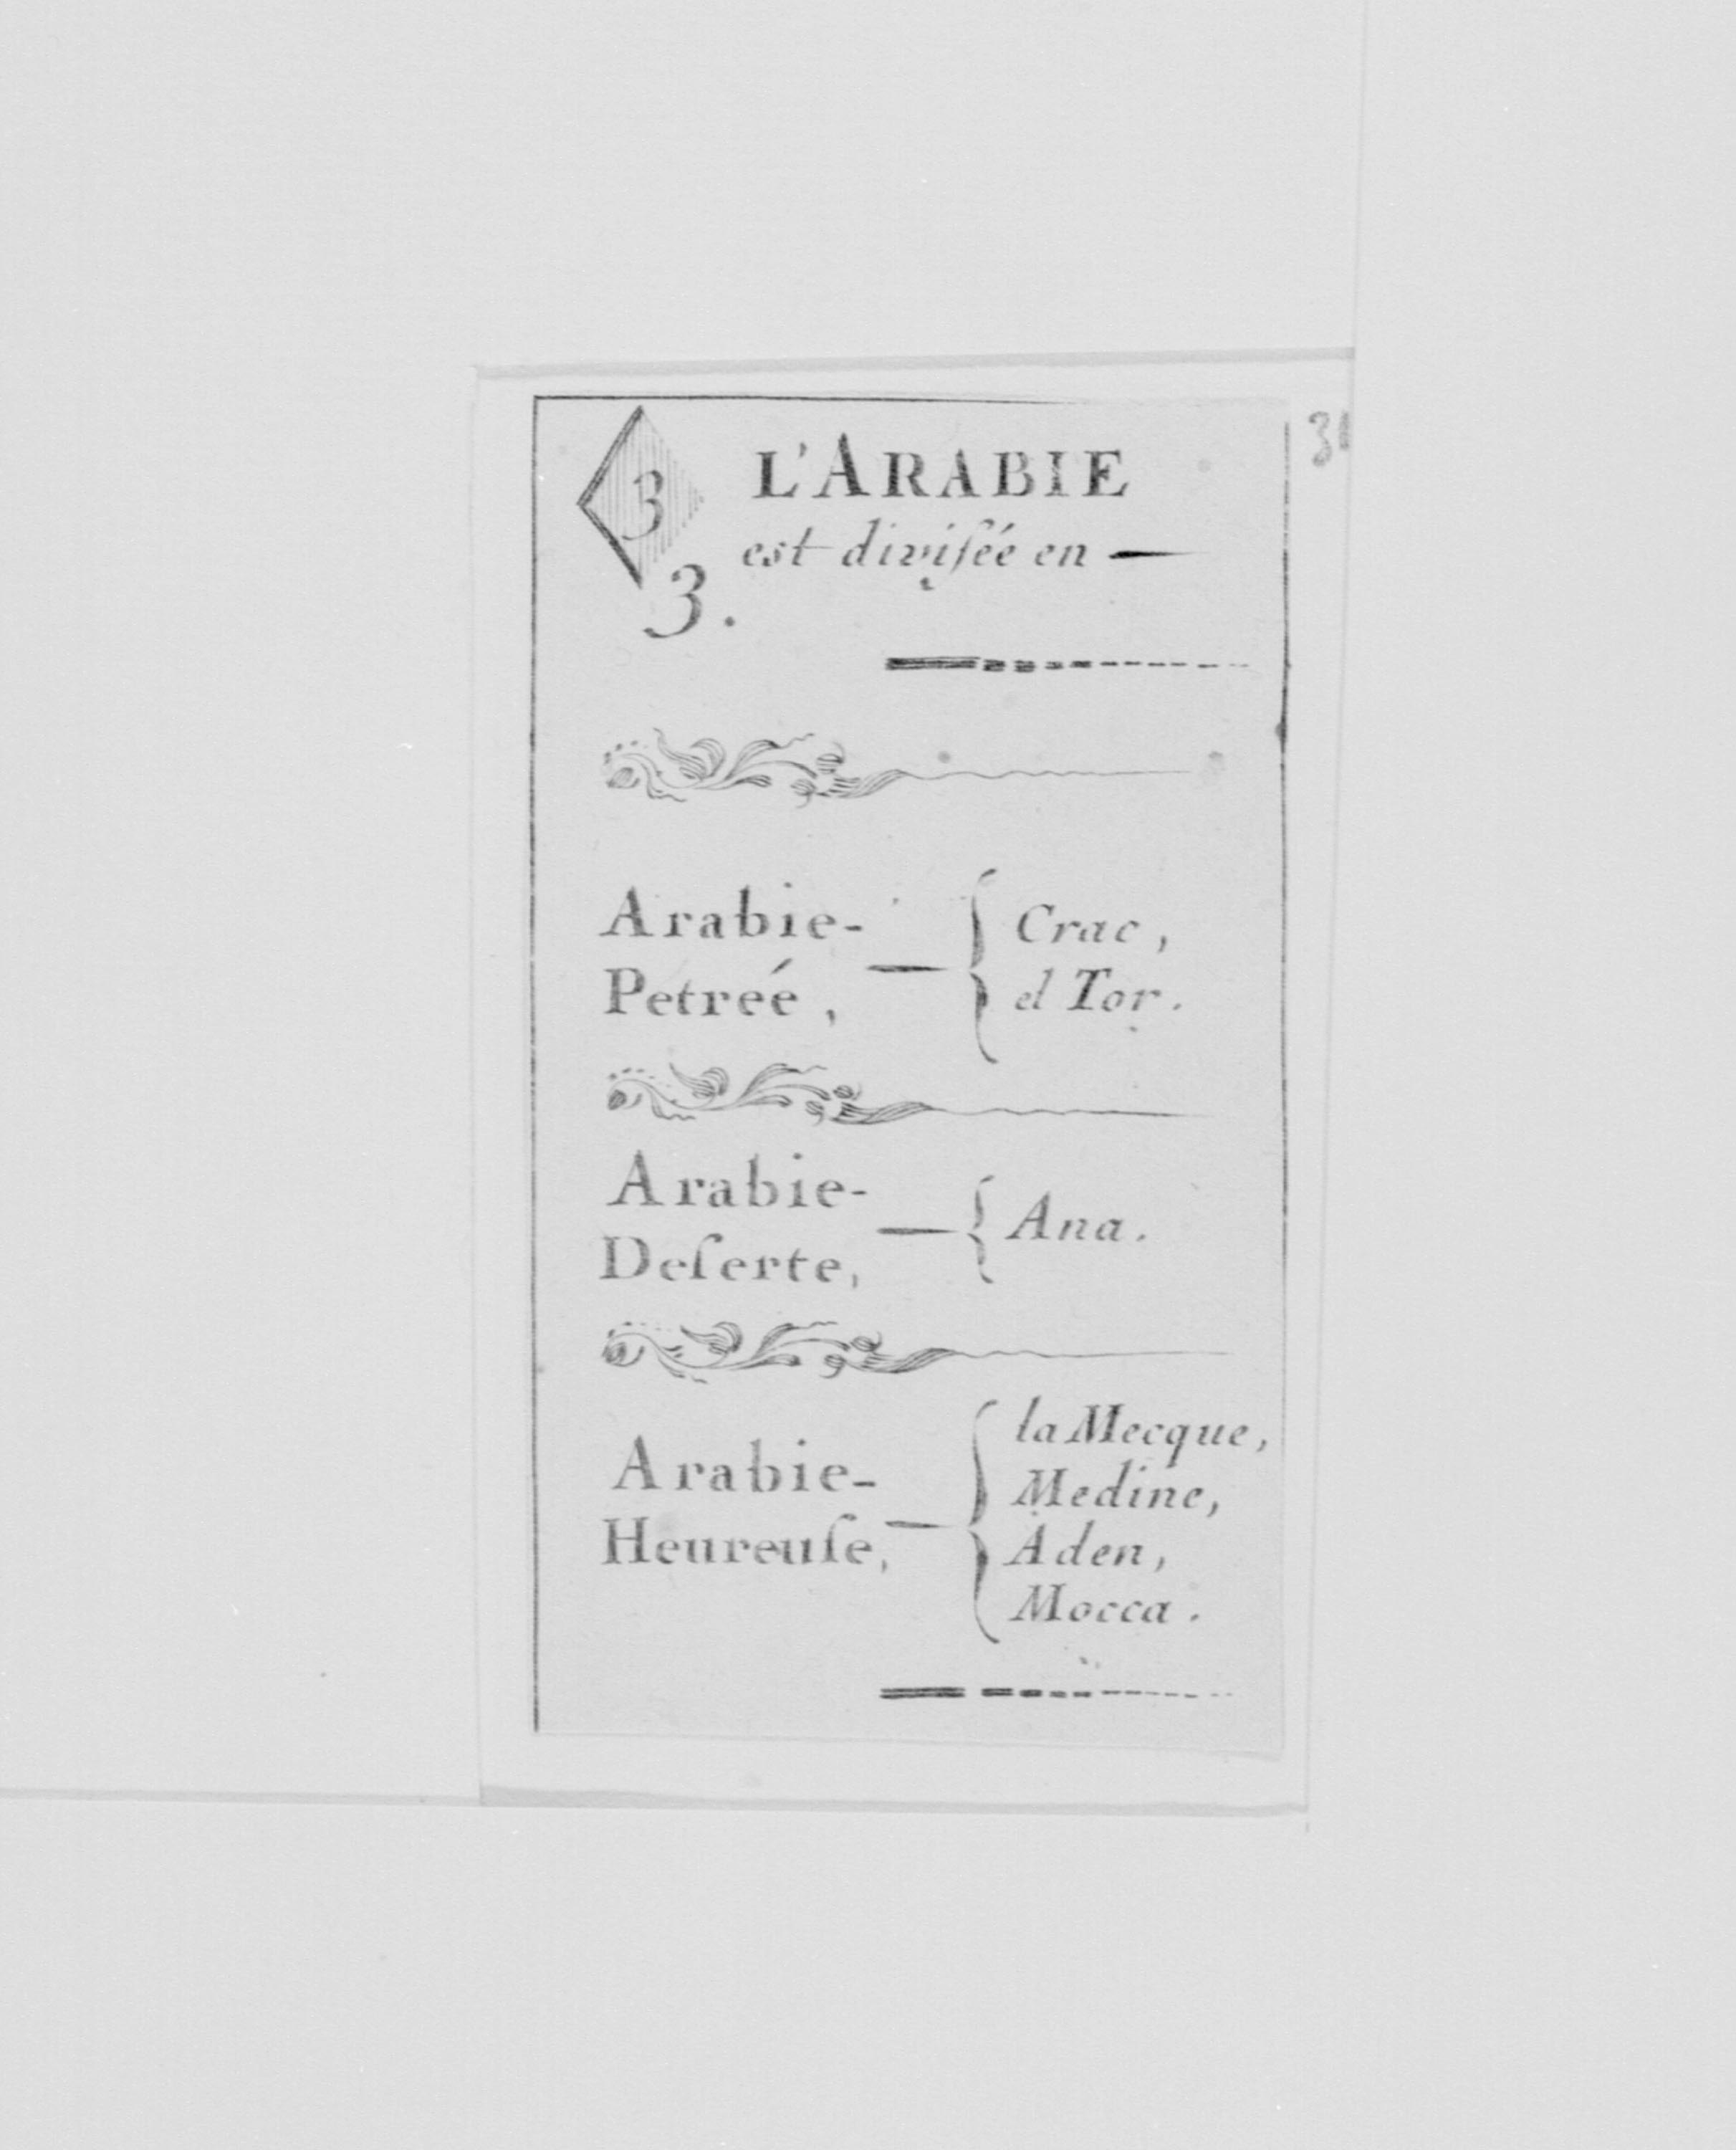 3
L'ARABIE
31
est diviſée en —
3.
Arabie-
Petreé, — { Crac,
el Tor.
Arabie-
Deſerte, — { Ana.
Arabie-
Heureuſe, — { la Mecque,
Medine,
Aden,
Mocca.